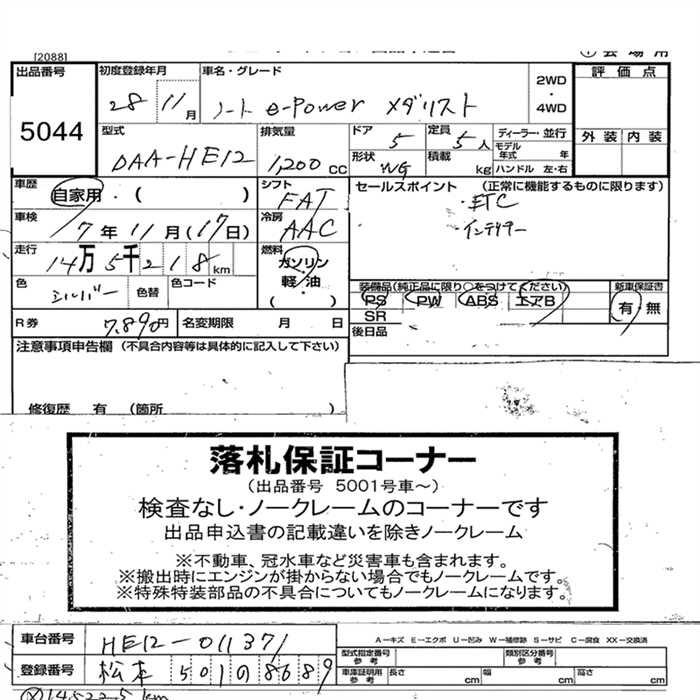 [2088]
出品番号
5044
初度登録年月
28 11月
車名・グレード
ノート e-Power メダリスト
2WD
・
4WD
評価点
外装 内装
型式
DAA-HE12
排気量
1,200 CC
ドア
5
定員
5人
形状
WG
積載
kg
ディーラー・並行
モデル
年式 年
ハンドル 左・右
車歴
自家用・( )
シフト
FAT
車検
7年11月(17日)
冷房
AAC
セールスポイント (正常に機能するものに限ります)
・ETC
・インテリキー
走行
14万5千218km
燃料
ガソリン
軽・油
( )
色
シルバー
色替
色コード
装備品(純正品に限り○をつけてください)
PS PW ABS エアB
SR
新車保証書
有・無
R券
7,890円
名変期限 月 日
後日品
注意事項申告欄 (不具合内容等は具体的に記入して下さい)
修復歴 有 (箇所 )
落札保証コーナー
(出品番号 5001号車～)
検査なし・ノークレームのコーナーです
出品申込書の記載違いを除きノークレーム
※不動車、冠水車など災害車も含まれます。
※搬出時にエンジンが掛からない場合でもノークレームです。
※特殊特装部品の不具合についてもノークレームになります。
車台番号
HE12-011371
A－キズ E－エクボ U－凹み W－補修跡 S－サビ C－腐食 XX－交換済
型式指定番号
参考
類別区分番号
参考
登録番号
松本 501 の 8689
車庫証明用
参考
長さ cm 幅 cm 高さ cm